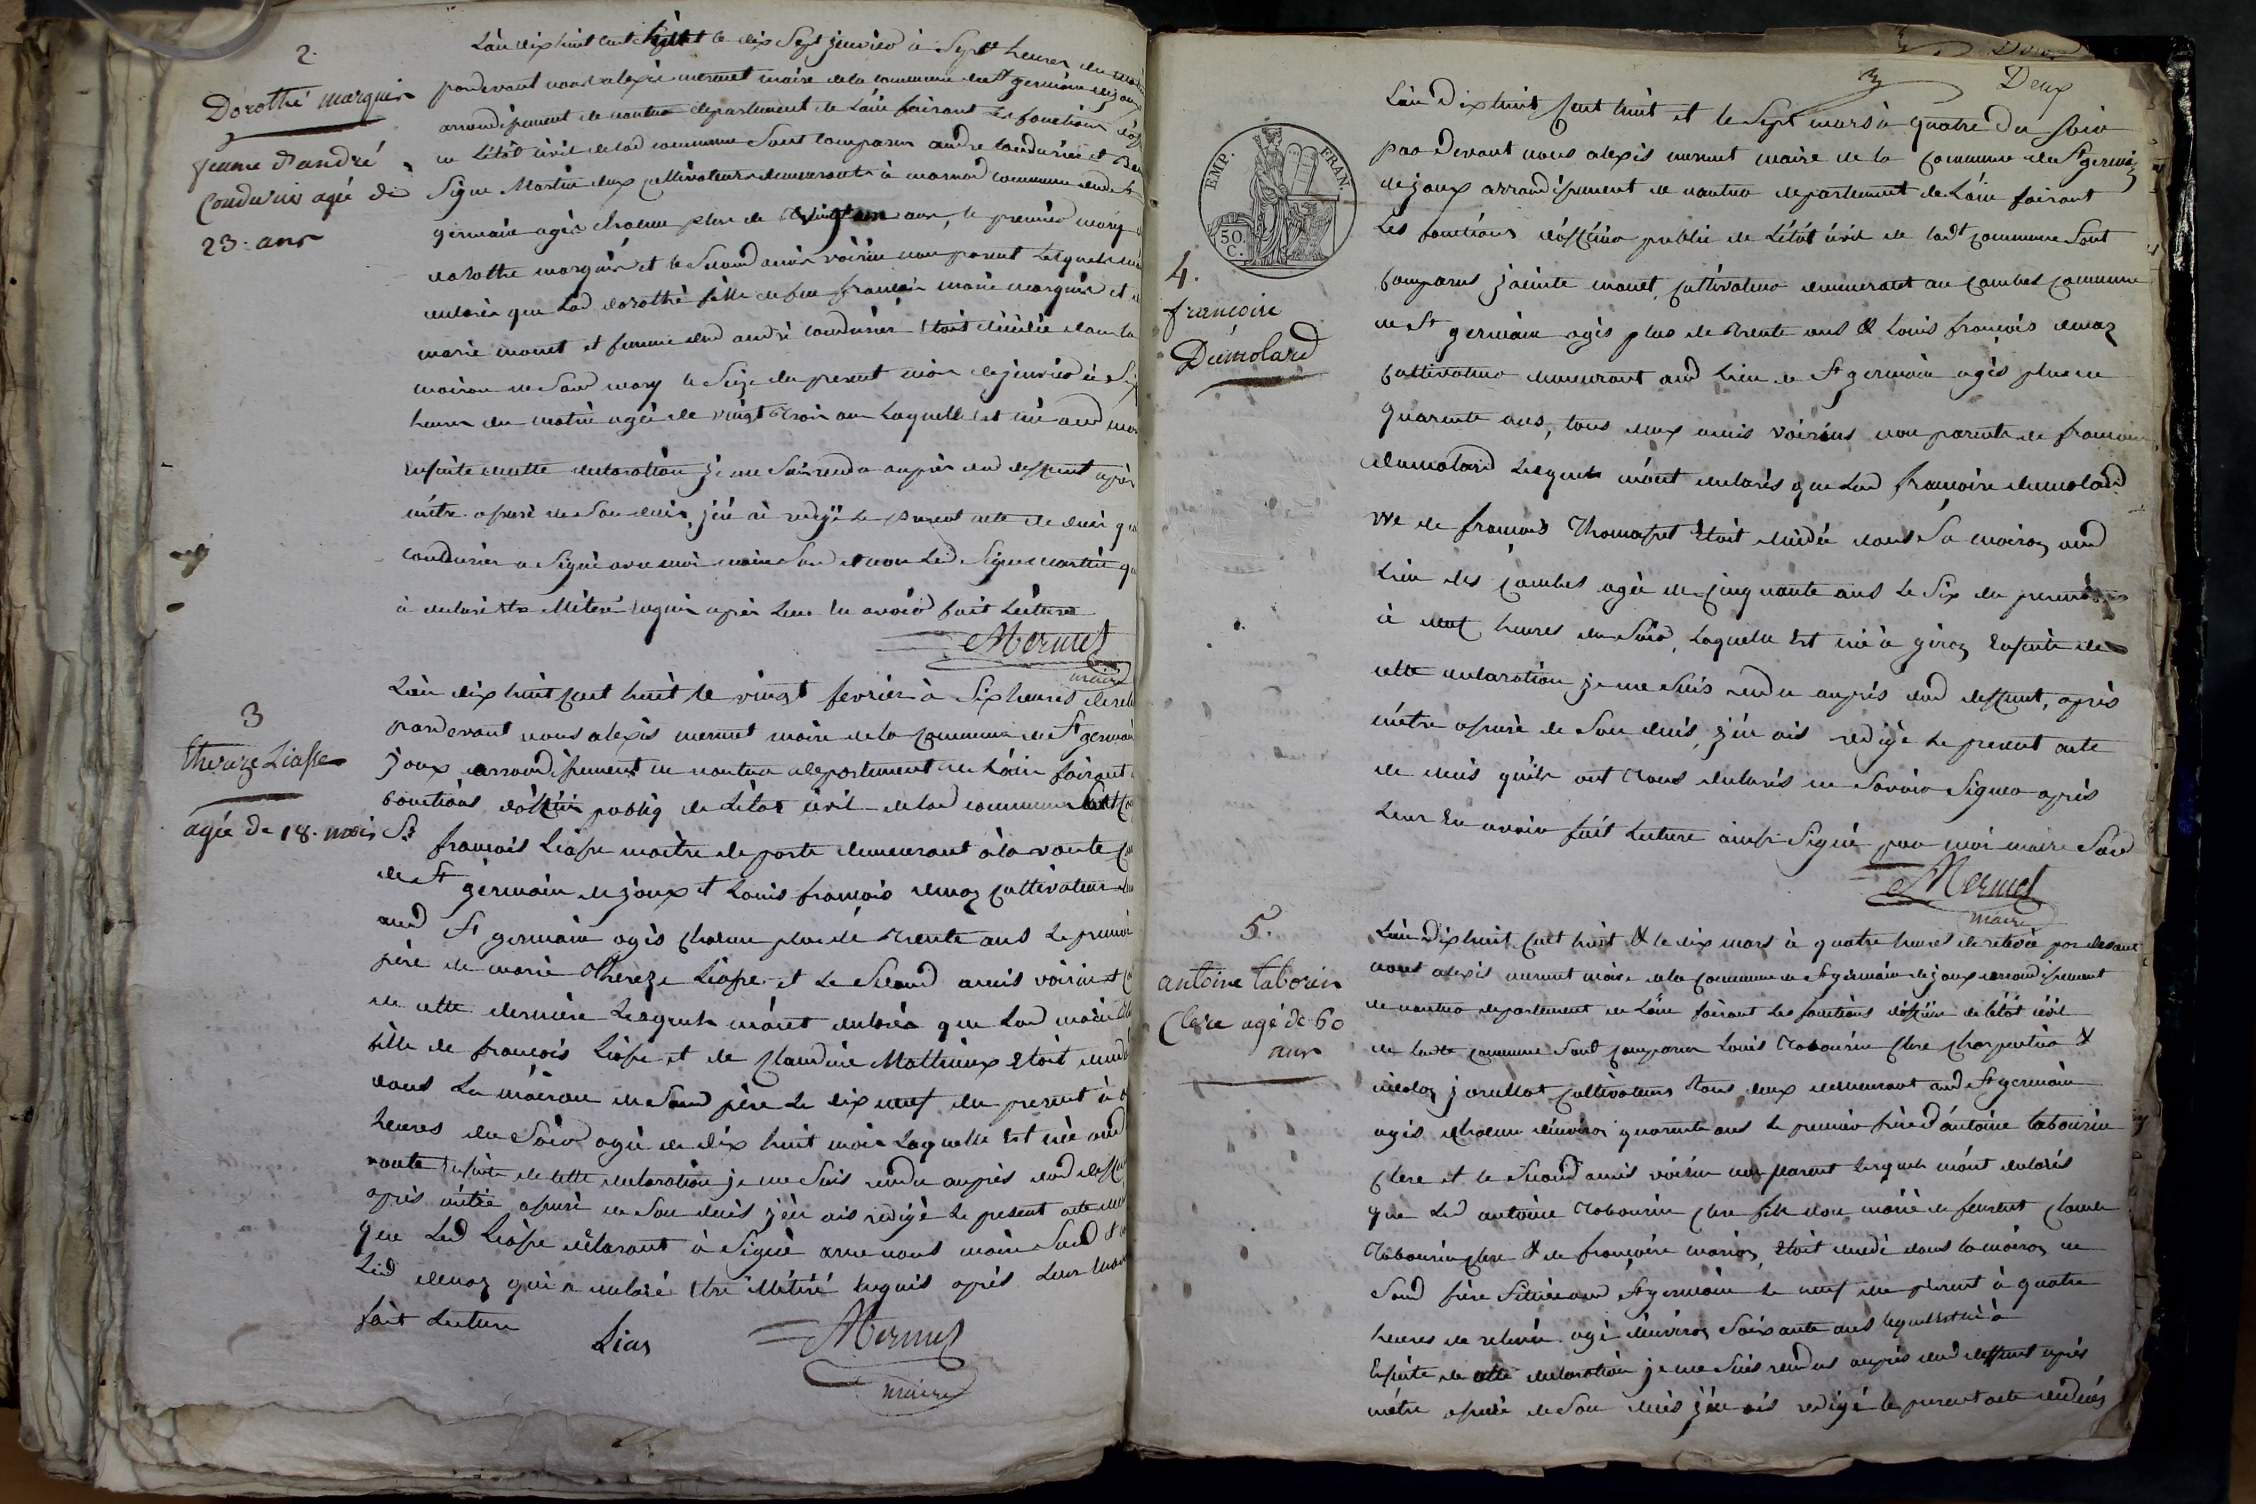 2.
Dorothé marquis
femme d'andré
Condurier agée de
23. ans
L'an dix huit cent huit et le dix Sept janvier à Sept heures du matin
pardevant nous alexis mermet maire de la commune de St germain de joux
arrondissement de nantua departement de L'ain faisant les fonctions
de L'état civil de lad commune Sont comparus andré Condurier et
Sigue Martin deux cultivateurs demeurants à marnod commune dud St
germain agés chacun plus de vingt ans, le premier mary
dorothé marquis et le Second amis voisin non parent Lesquels
declarés que Lad dorothé fille de feu françois marie marquis et
marie monet et femme dud andré Condurier Etoit décédée dans la
maison de Sond mary le Seize du present mois de janvier à Six
heures du matin agée de vingt trois ans Laquelle est née aud
Ensuite de cette declaration je me Suis rendu auprès dud deffunt après
m'étre assuré de Son decés, j'en ai redigé Le present acte de decés
Condurier a Signé avec moi maire Sud et non Led Sigue martin
à declaré Etre illiteré requis après Leur En avoir fait Lecture
Mermet
maire
3
thereze Liasse
agée de 18. mois
L'an dix huit cent huit le vingt fevrier à Six heures de
pardevant nous alexis mermet maire de la commune de St germain
joux arrondissement de nantua departement de L'ain faisant
fonctions d'officier public de L'état civil de lad commune Sont
Sr françois Liasse maitre de poste demeurant à la voute
de St germain de joux et Louis françois demoz cultivateur
aud St germain agés chacun plus de trente ans Le premier
père de marie thereze Liasse et Le Second amis voisin et
de cette dernière Lesquels m'ont declarés que Lad marie
fille de françois Liasse et de Claudine Mathieux Etoit
dans La maison de Sond père Le dix neuf du present à
heures du Soir agée de dix huit mois Laquelle Est née aud
voute Ensuite de cette declaration je me Suis rendu auprès dud
après m'étre assuré de Son decés j'en ais redigé Le present acte
que Led Liasse declarant à Signé avec nous maire Sud et
Led demoz qui a declaré Etre illitéré requis après Leur
fait Lecture
Lias
Mermet
maire
Deux
EMP. FRAN.
50. C.
4.
françoise
Dumolard
L'an Dix huit Cent huit et le Sept mars à quatre du Soir
par Devant nous alexis mermet maire de la Commune de St germain
de joux arrondissement de nantua departement de L'ain faisant
Les fonctions d'officier public de L'état civil de ladt commune Sont
Comparus jacinte monet, Cultivateur demeurant au Combes Commune
de St germain agés plus de trente ans & Louis françois demoz
Cultivateur demeurant aud Lieu de St germain agés plus de
quarante ans, tous deux amis voisins non parents de françoise
dumolard Lesquels m'ont declarés que Lad françoise dumolard
vve de françois Thomasset Etoit decédée dans Sa maison aud
Lieu des Combes agée de cinquante ans Le Six du present
à neuf heures du Soir, Laquelle Est née à giron Ensuite de
cette declaration je me Suis rendu auprés dud deffunt, aprés
m'étre assuré de Son decés, j'en ais redigé Le present acte
de decés qu'ils ont tous declarés ne Savoir Signer aprés
Leur En avoir fait Lecture ainsi Signé par moi maire Susd
Mermet
maire
5.
antoine taborin
Clere agé de 60
ans
L'an Dix huit Cent huit & le dix mars à quatre heures de relevée par devant
nous alexis mermet maire de la Commune de St germain de joux arrondissement
de nantua departement de L'ain faisant Les fonctions d'officier de l'état civil
de ladte commune Sont Comparus Louis tabourin Clere Charpentier &
nicolas jarullot Cultivateurs tous deux demeurant aud St germain
agés chacun d'environ quarante ans Le premier frère d'antoine tabourin
Clere et le Second amis voisin non parent Lesquels m'ont declarés
que Led antoine tabourin Clere fils non marié de feu Claude
tabourin Clere & de françoise marion, Etoit decedé dans la maison de
Sond frère Située aud St germain Le neuf du present à quatre
heures de relevée agé d'environ Soixante ans Lequel est né à
Ensuite de cette declaration je me Suis rendus auprés dud deffunt aprés
m'étre assuré de Son decés j'en ais redigé Le present acte de decés